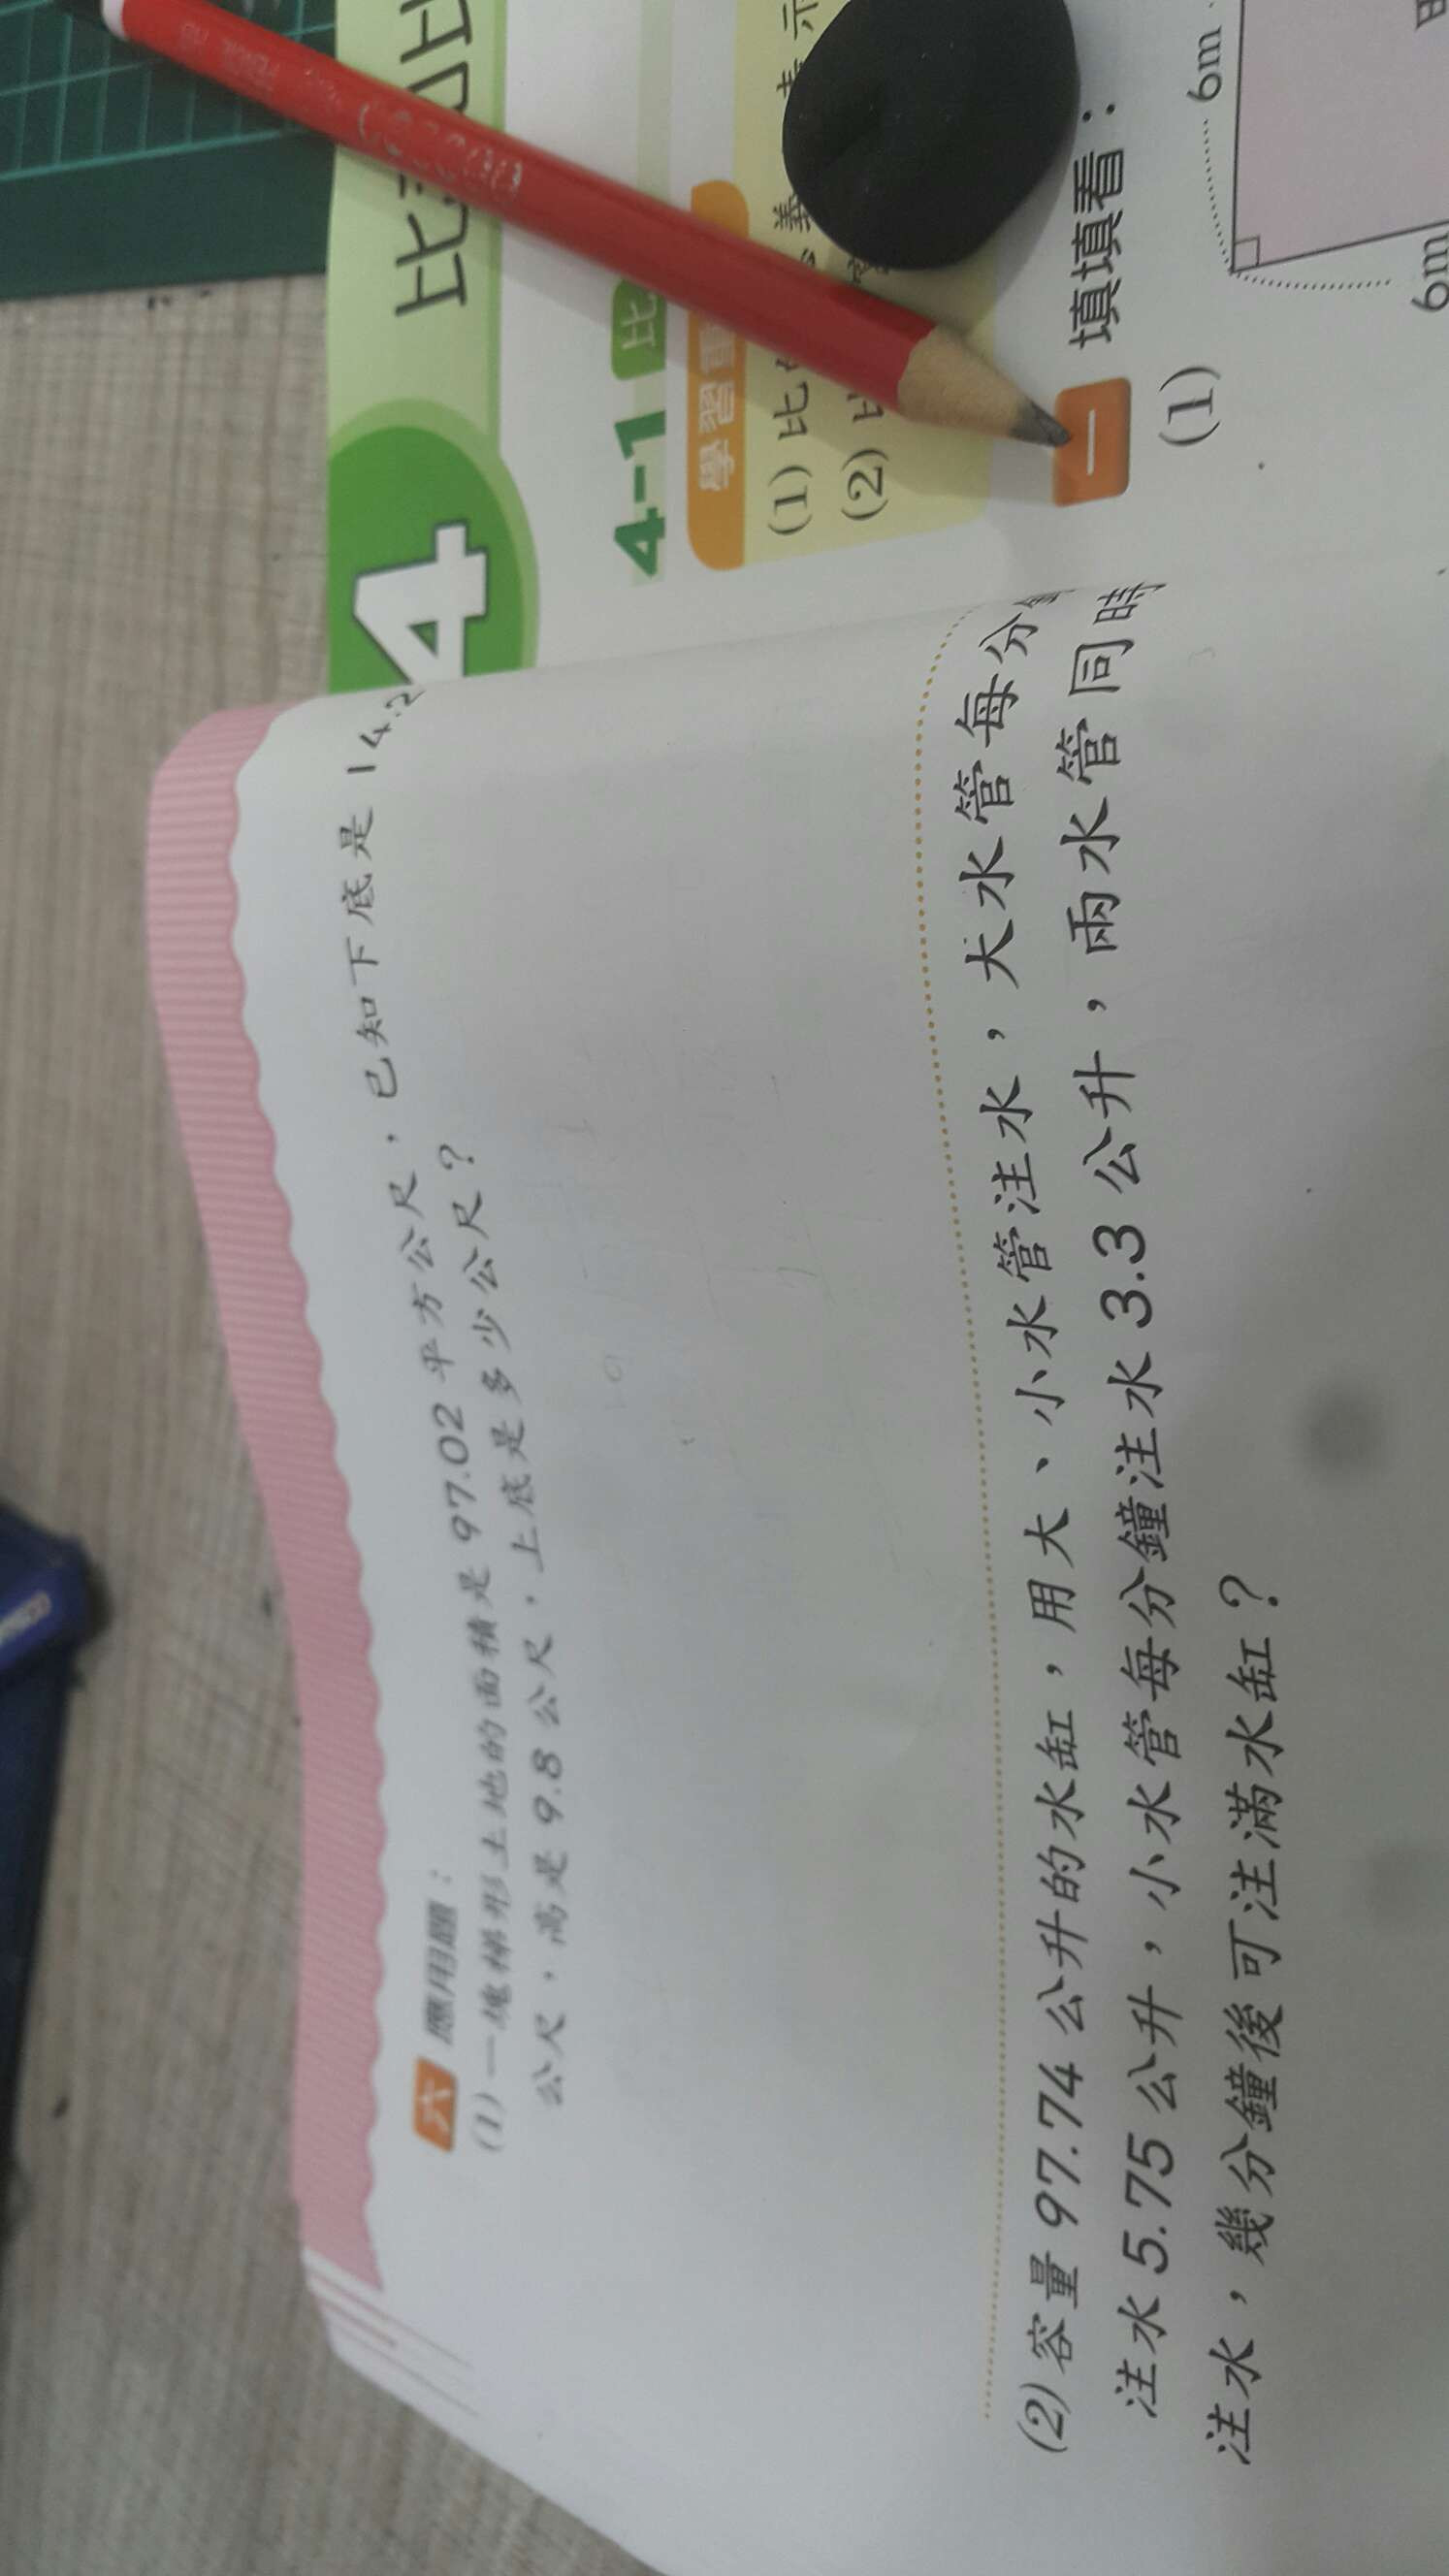 六 應用題：
(1) 一塊梯形土地的面積是 97.02 平方公尺，已知下底是 14.2
公尺，高是 9.8 公尺，上底是多少公尺？
(2) 容量 97.74 公升的水缸，用大、小水管注水，大水管每分
注水 5.75 公升，小水管每分鐘注水 3.3 公升，兩水管同時
注水，幾分鐘後可注滿水缸？
4
4-1 比
學習重
(1) 比
(2) 比
一 填填看：
(1)
6m
6m